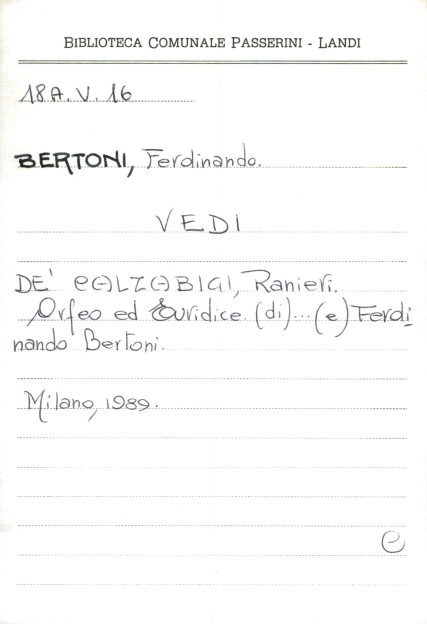 BIBLIOTECA COMUNALE PASSERINI - LANDI
18A.V.16
BERTONI, Ferdinando.
VEDI
DE' CALZABIGI, Ranieri.
Orfeo ed Euridice. (di)...(e) Ferdi
nando Bertoni.
Milano, 1989.
e